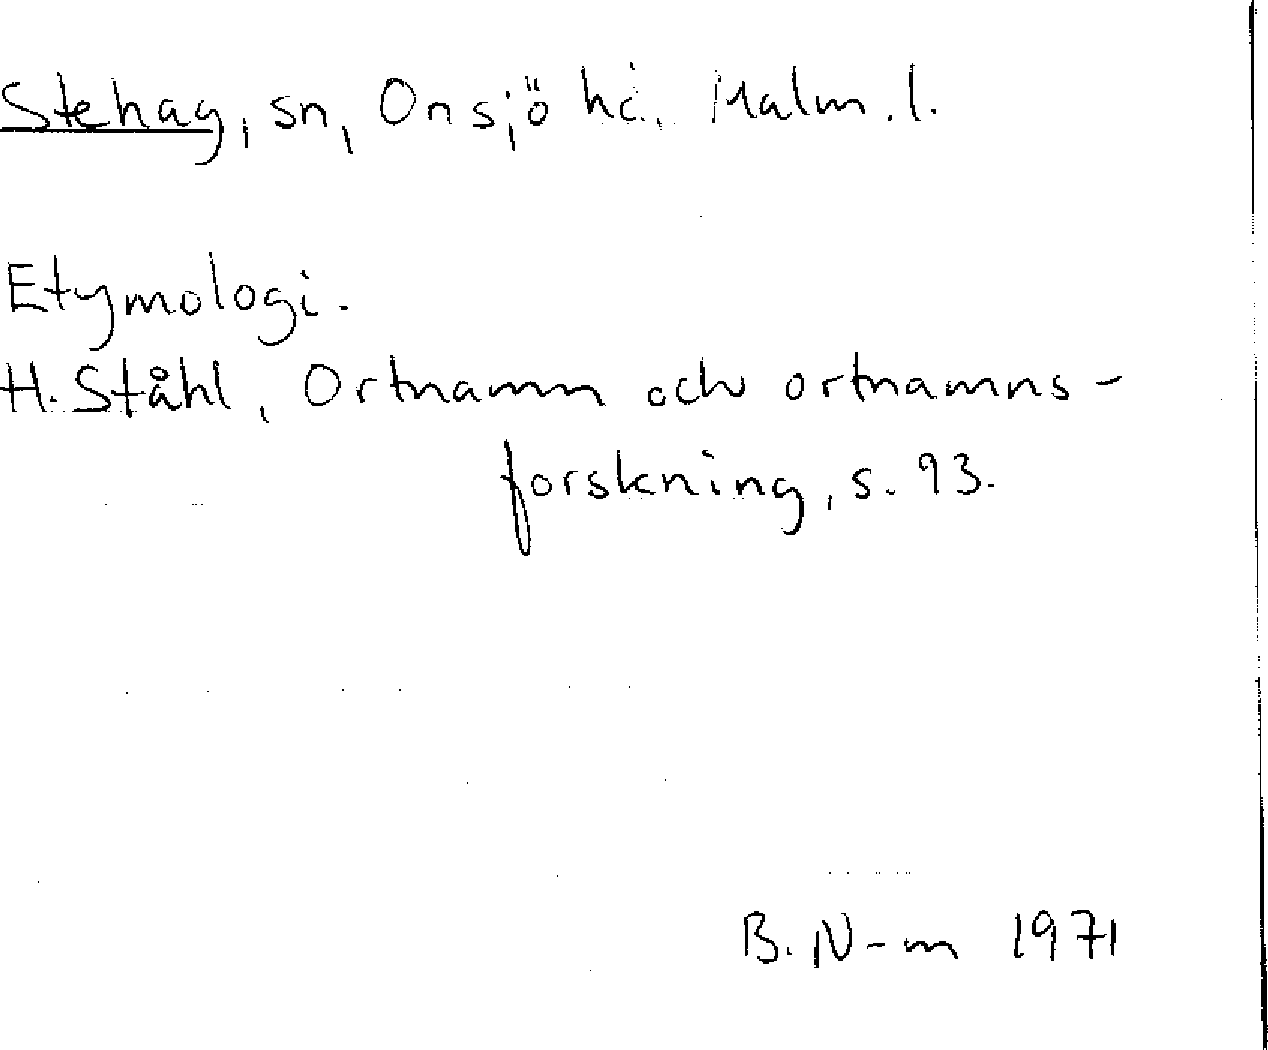 Stehag, sn, Onsjö hd, Malm. l.
Etymologi.
H. Ståhl, Ortnamn och ortnamns-
forskning, s. 93.
B. N-m 1971